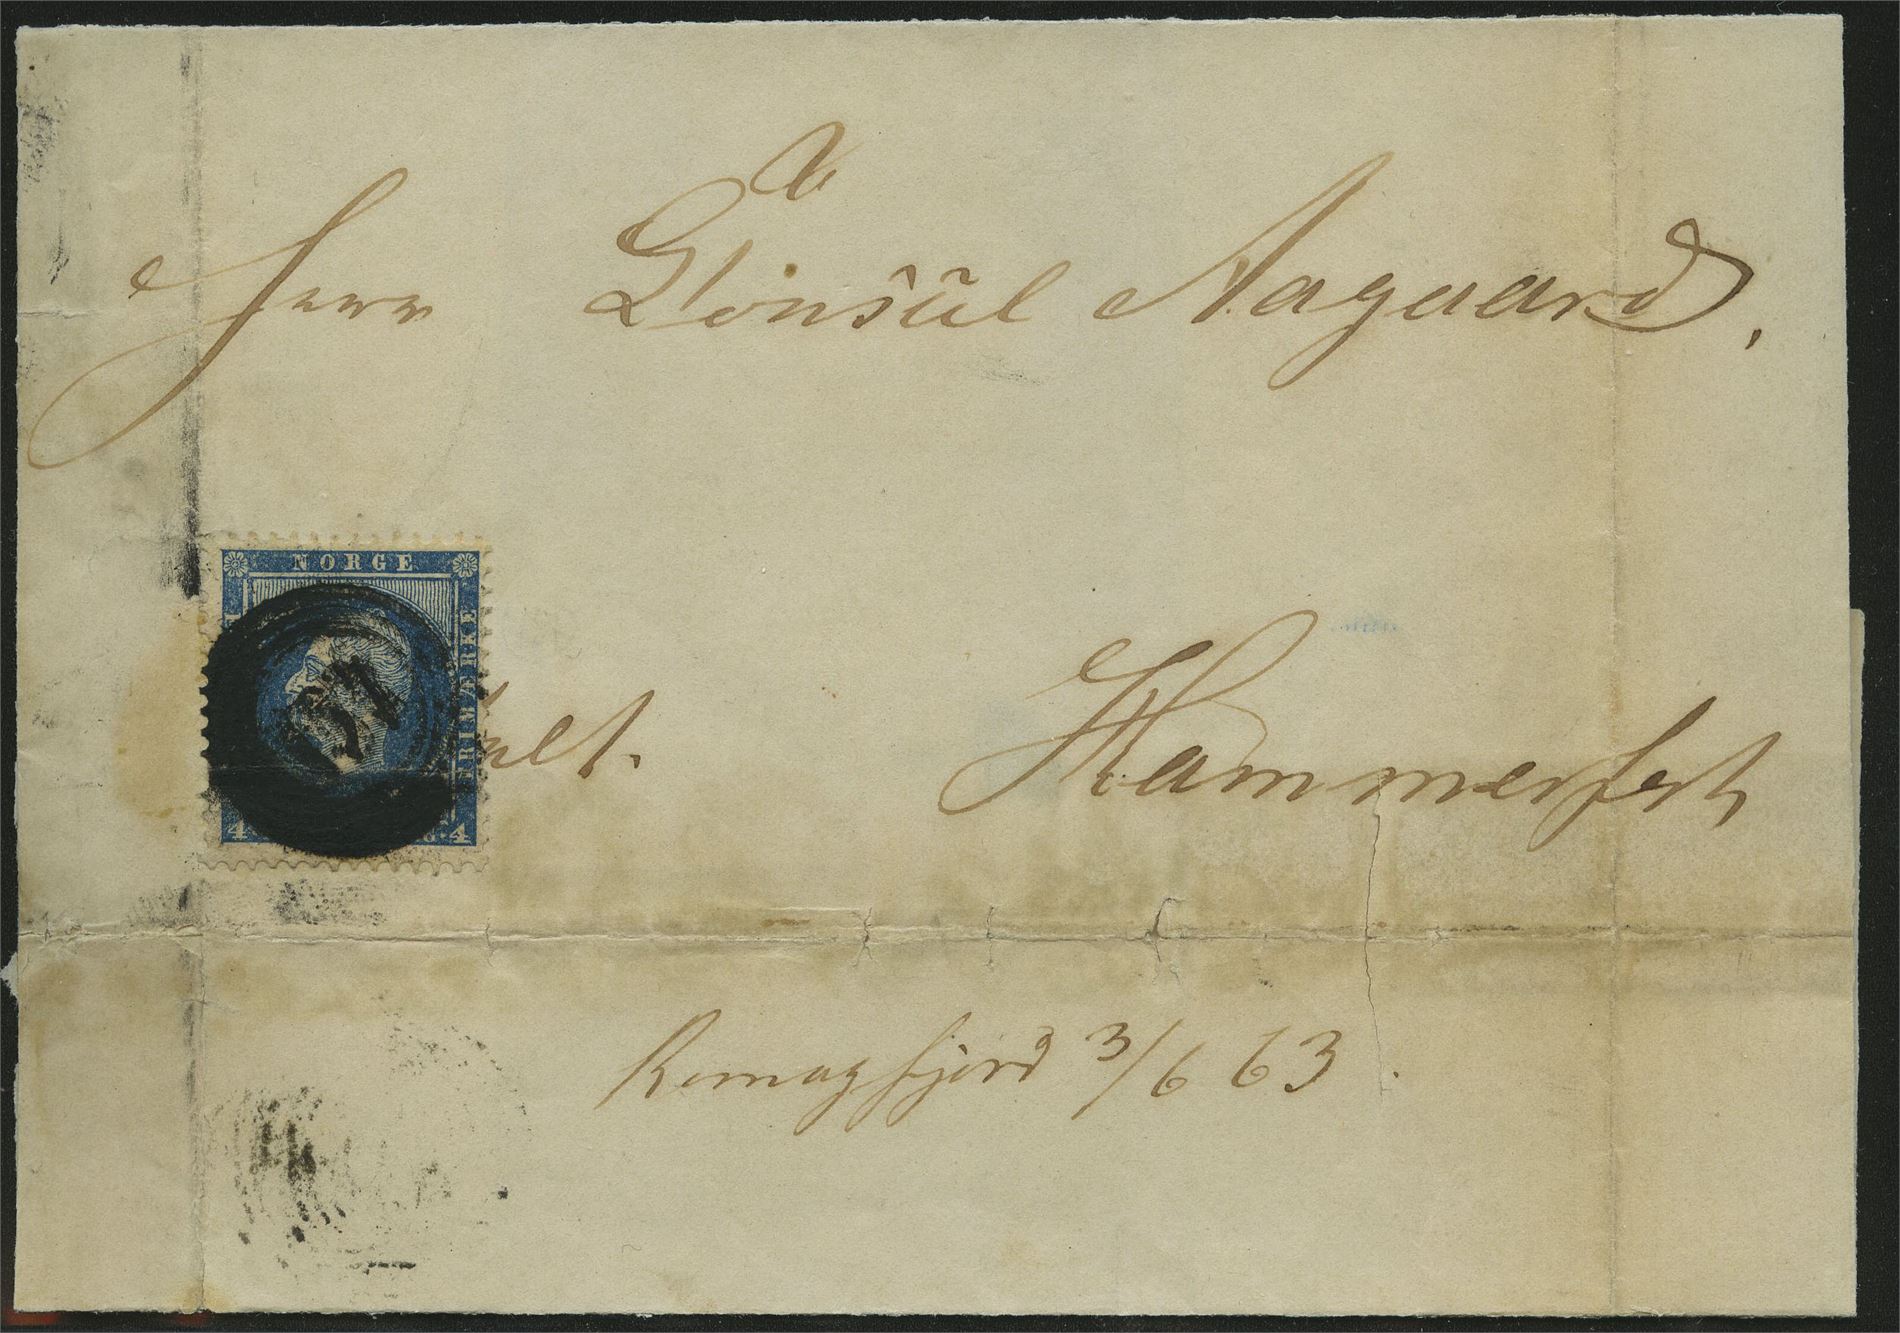 Herr Consul Aagaard,
NORGE
FRIMÆRKE
4 4
Hammerfest
Komagfjord 3/6 63.